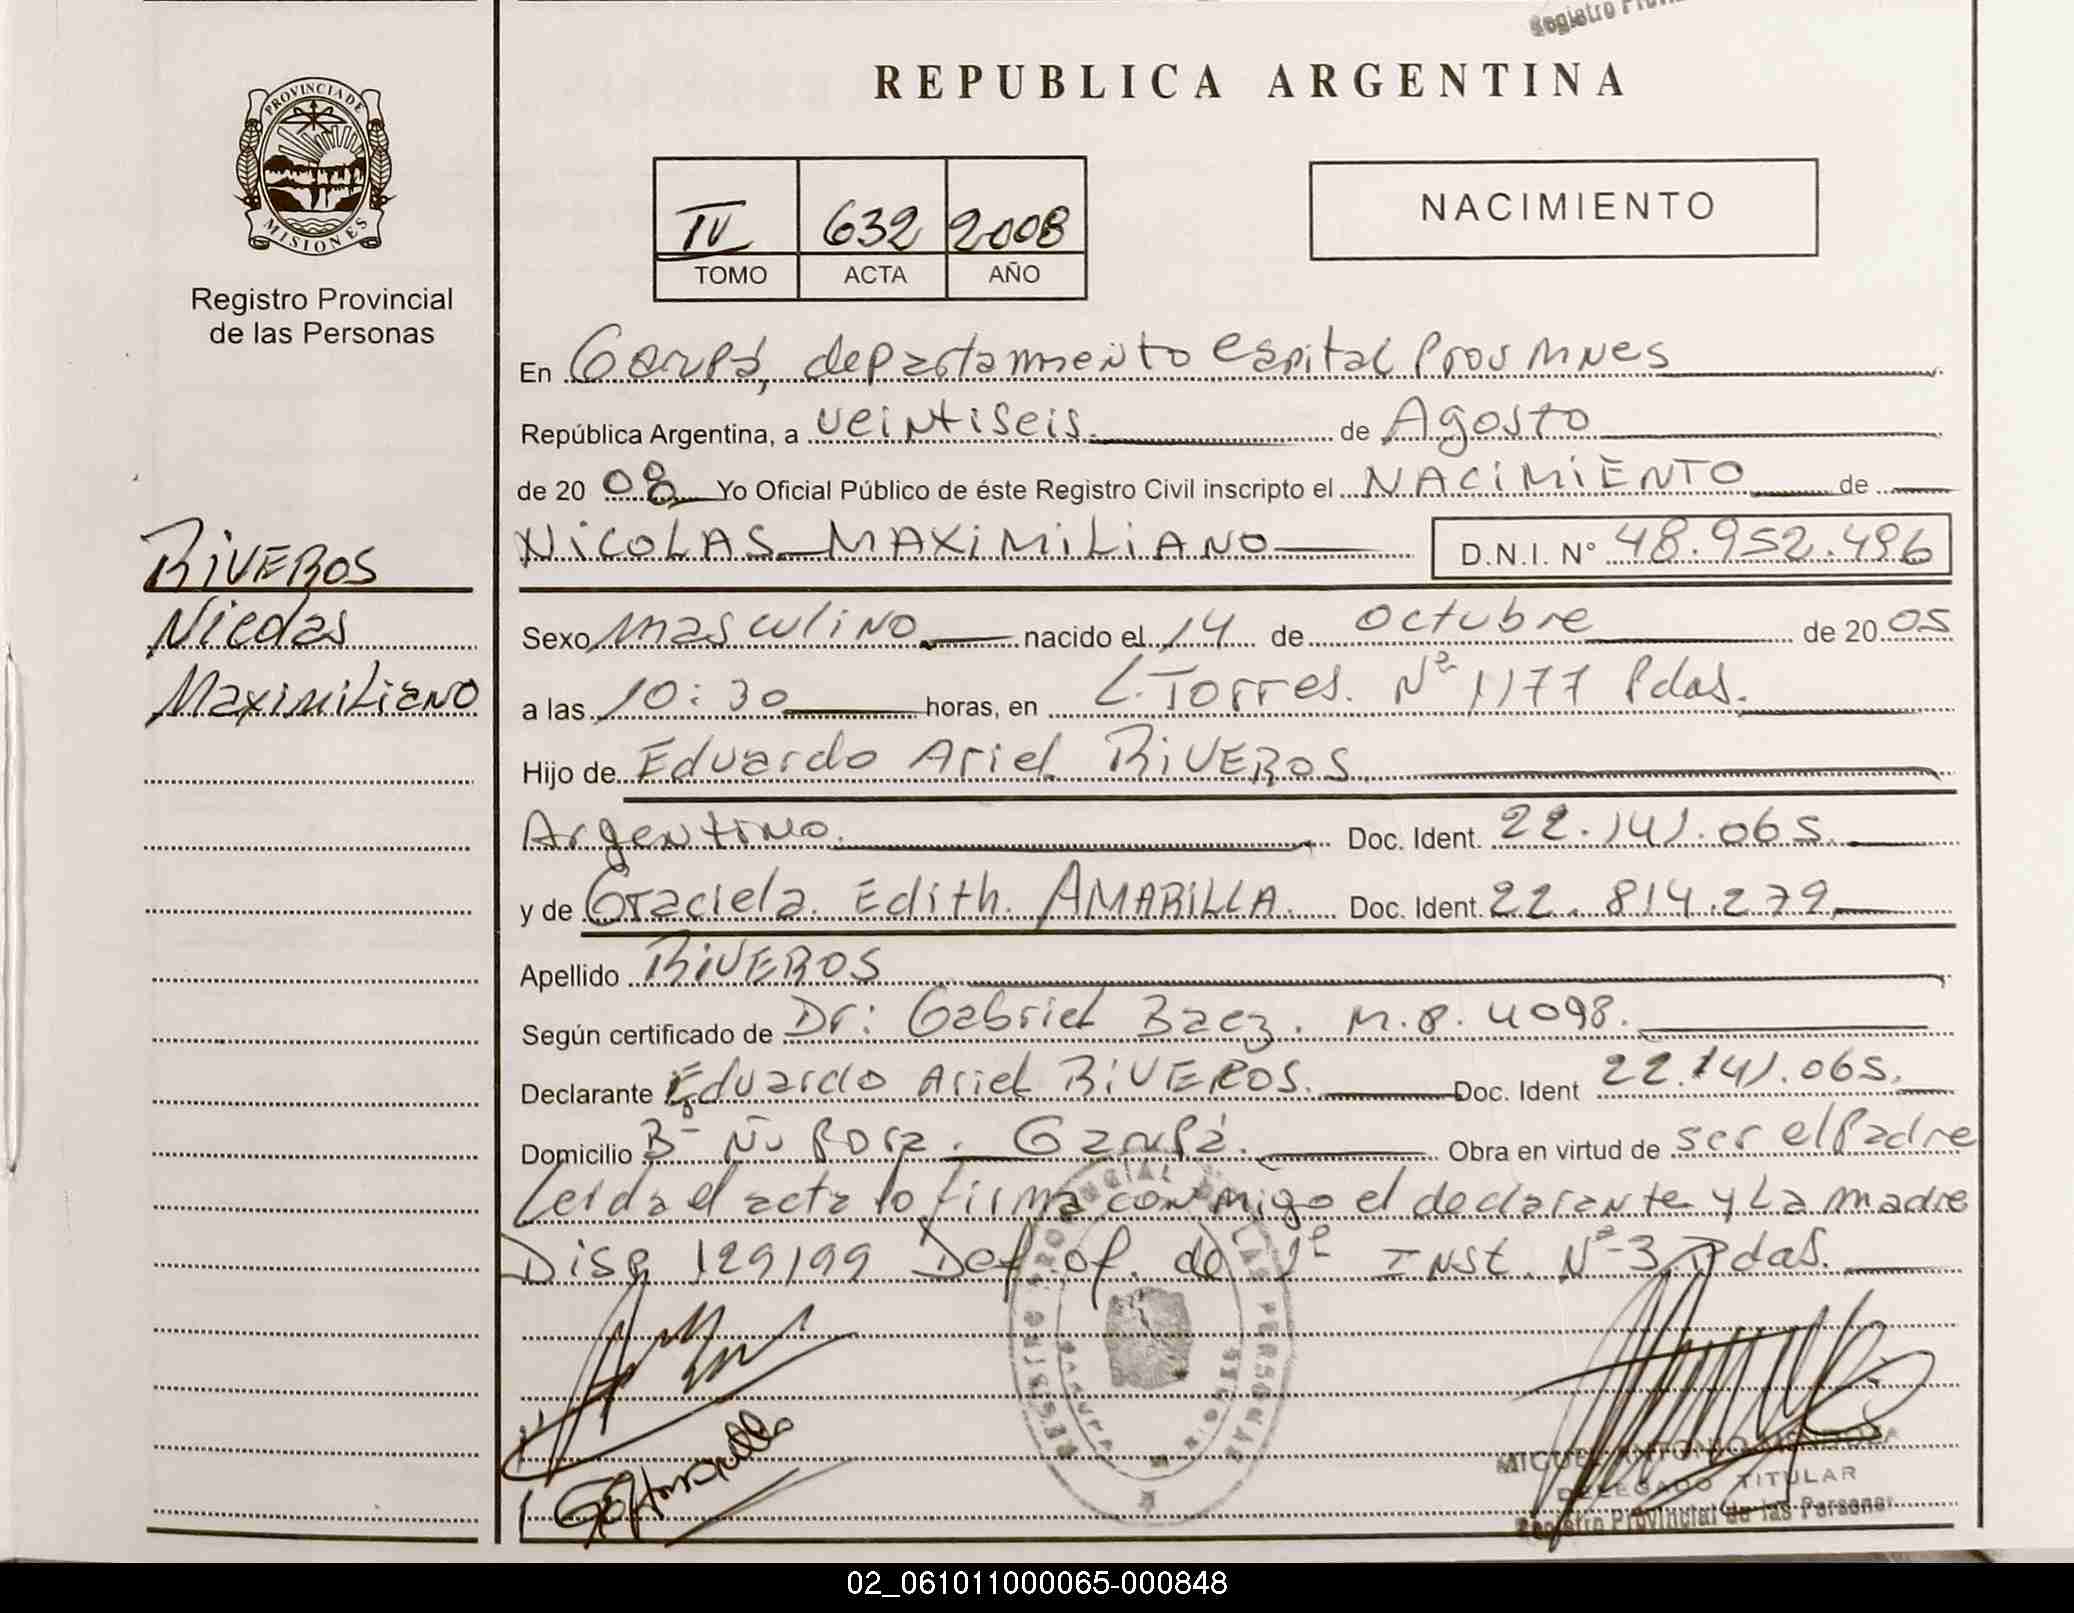 Registro Provin
REPUBLICA ARGENTINA
PROVINCIA DE
MISIONES
Registro Provincial
de las Personas
IV 632 2008
TOMO ACTA AÑO
NACIMIENTO
En Garupá, departamento Capital Prov Mnes
República Argentina, a veintiseis. de Agosto
de 20 08 Yo Oficial Público de éste Registro Civil inscripto el NACIMIENTO de
RIVEROS
Nicolas
Maximiliano
NICOLAS MAXIMILIANO D.N.I. N° 48.952.496
Sexo masculino nacido el 14 de octubre de 20 05
a las 10:30 horas, en L. Torres. Nº 1177 Pdas.
Hijo de Eduardo Ariel RIVEROS
Argentino. Doc. Ident. 22.141.065.
y de Graciela Edith. AMARILLA. Doc. Ident. 22.814.279
Apellido RIVEROS
Según certificado de Dr: Gabriel Baez. M.P. 4098.
Declarante Eduardo Ariel RIVEROS. Doc. Ident 22.141.065.
Domicilio Bº Ñu Pora. Garupá. Obra en virtud de ser el Padre
Leida el acta lo firma conmigo el declarante y La madre
Disp 129/99 Def. of. de 1º Inst. Nº 3 Pdas.
MIGUEL ANTONIO
DELEGADO TITULAR
Registro Provincial de las Personas
02_061011000065-000848